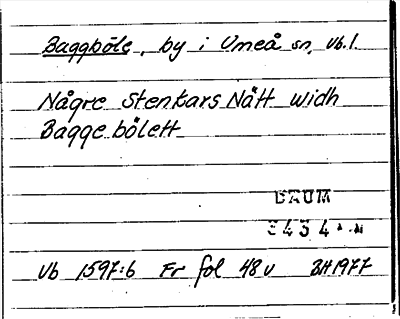 Baggböle, by i Umeå sn, Vb.l.
Någre Stenkars Nått widh
Bagge bölett
DAUM
3434
Vb 1597:6 Fr fol 48v BH 1977